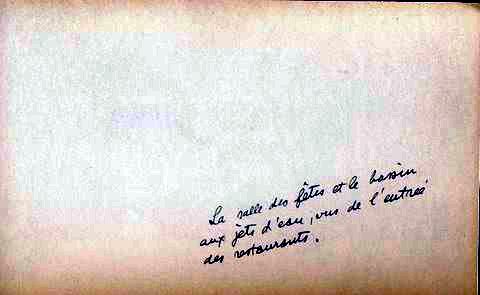 La salle des fêtes et le bassin
aux jets d'eau, vus de l'entrée
des restaurants.